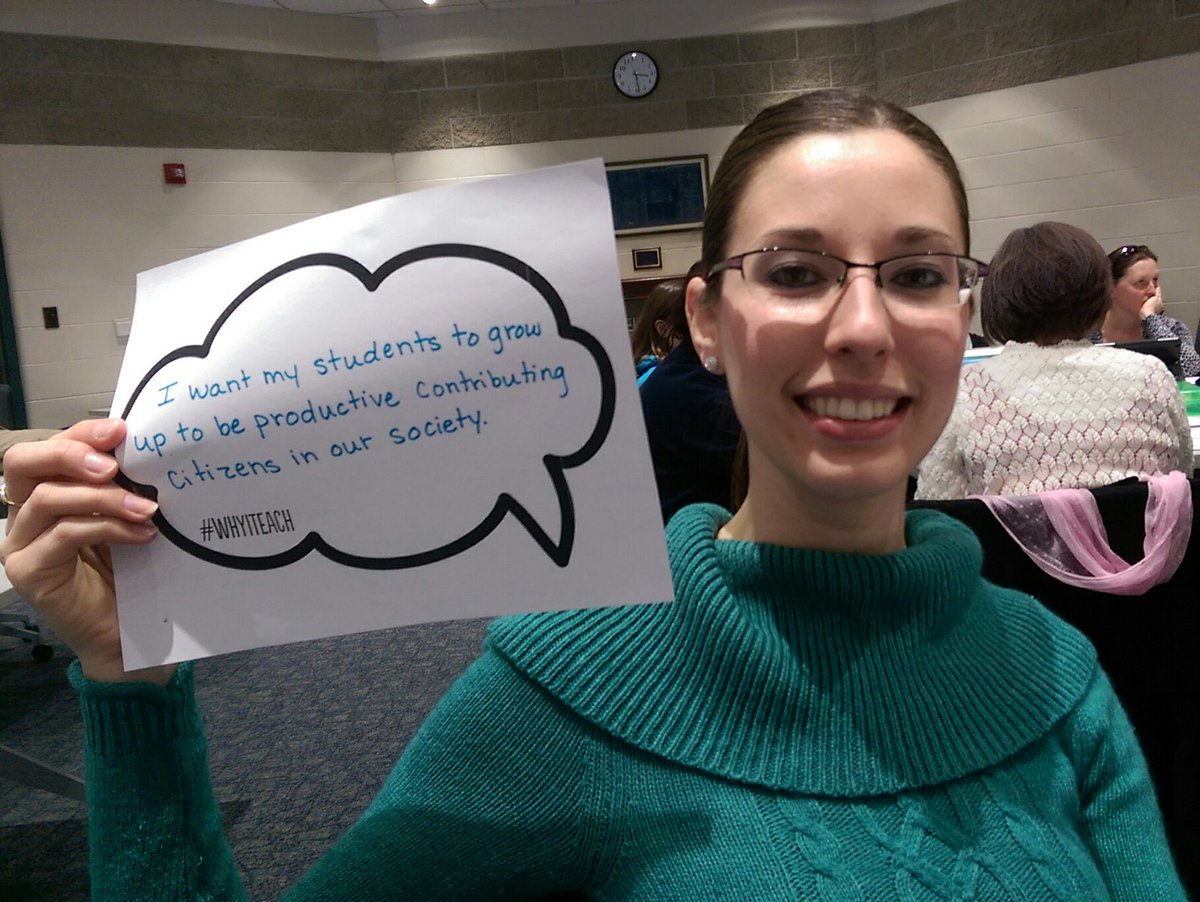 I want my students to grow
up to be productive contributing
citizens in our society.
#WHYITEACH